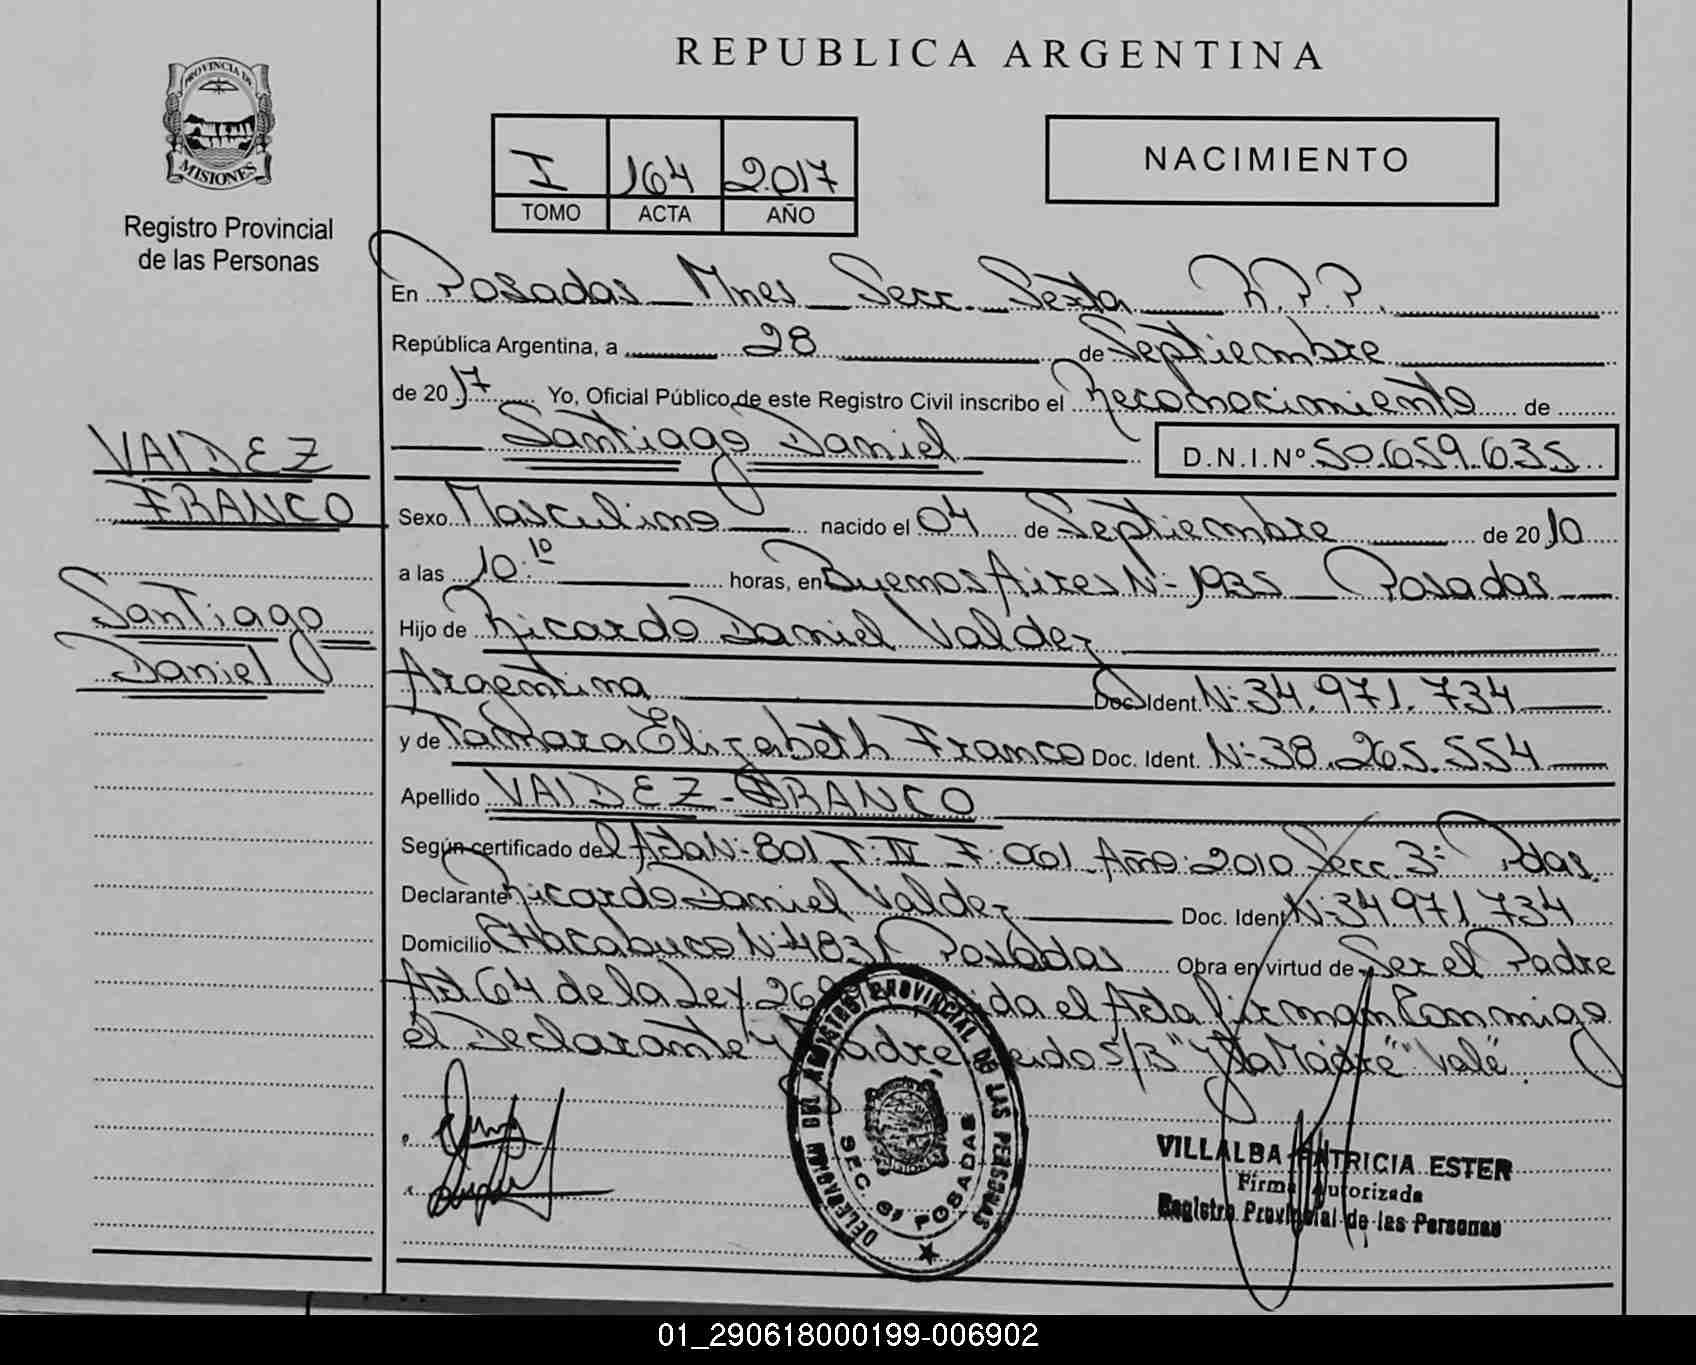 PROVINCIA DE
MISIONES
Registro Provincial
de las Personas
REPUBLICA ARGENTINA
I 164 2.017
TOMO ACTA AÑO
NACIMIENTO
En Posadas Mnes Secc. Sexta R.P.P.
República Argentina, a 28 de Septiembre
de 2017 Yo, Oficial Público de este Registro Civil inscribo el Reconocimiento de
Santiago Daniel D.N.I.Nº 50.659.635
VALDEZ
FRANCO
Santiago
Daniel
Sexo Masculino nacido el 04 de Septiembre de 2010
a las 10:10 horas, en Buenos Aires Nº 1935 Posadas
Hijo de Ricardo Daniel Valdez
Argentina Doc. Ident. Nº 34.971.734
y de Tamara Elizabeth Franco Doc. Ident. Nº 38.265.554
Apellido VALDEZ - FRANCO
Según certificado del Acta Nº 801 T: IV F: 001 Año: 2010 Secc. 3º Pdas.
Declarante Ricardo Daniel Valdez Doc. Ident. Nº 34971.734
Domicilio Chacabuco Nº 4831 Posadas Obra en virtud de Ser el Padre
Art 64 de la Ley el Acta firman Conmigo
el Declarante y Madre S/B "y la Madre" "Vale".
DELEGACION DEL REGISTRO PROVINCIAL DE LAS PERSONAS
SEC. 6ª POSADAS
VILLALBA PATRICIA ESTER
Firma Autorizada
Registro Provincial de las Personas
01_290618000199-006902